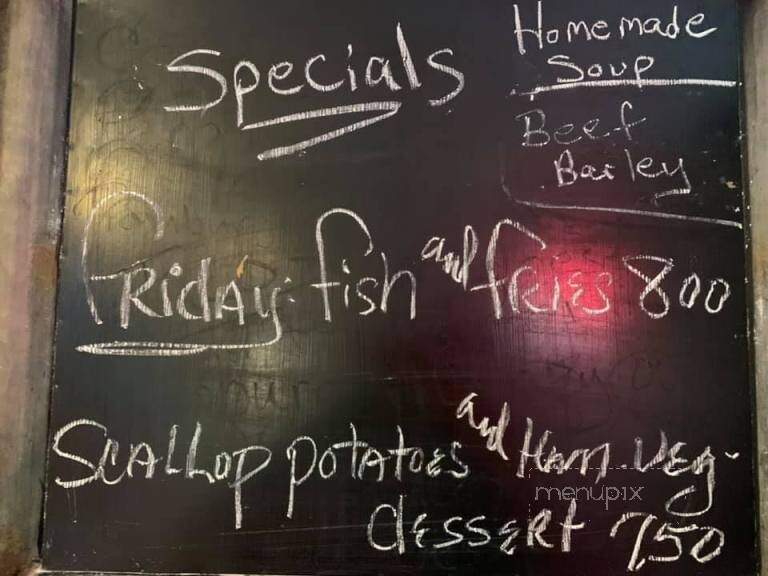 Specials
Homemade
Soup
Beef
Barley
fRidAy. fish and fRiEs 800
ScALLop potAtoEs and HAm. VEg.
dEssERt 7.50
menupix